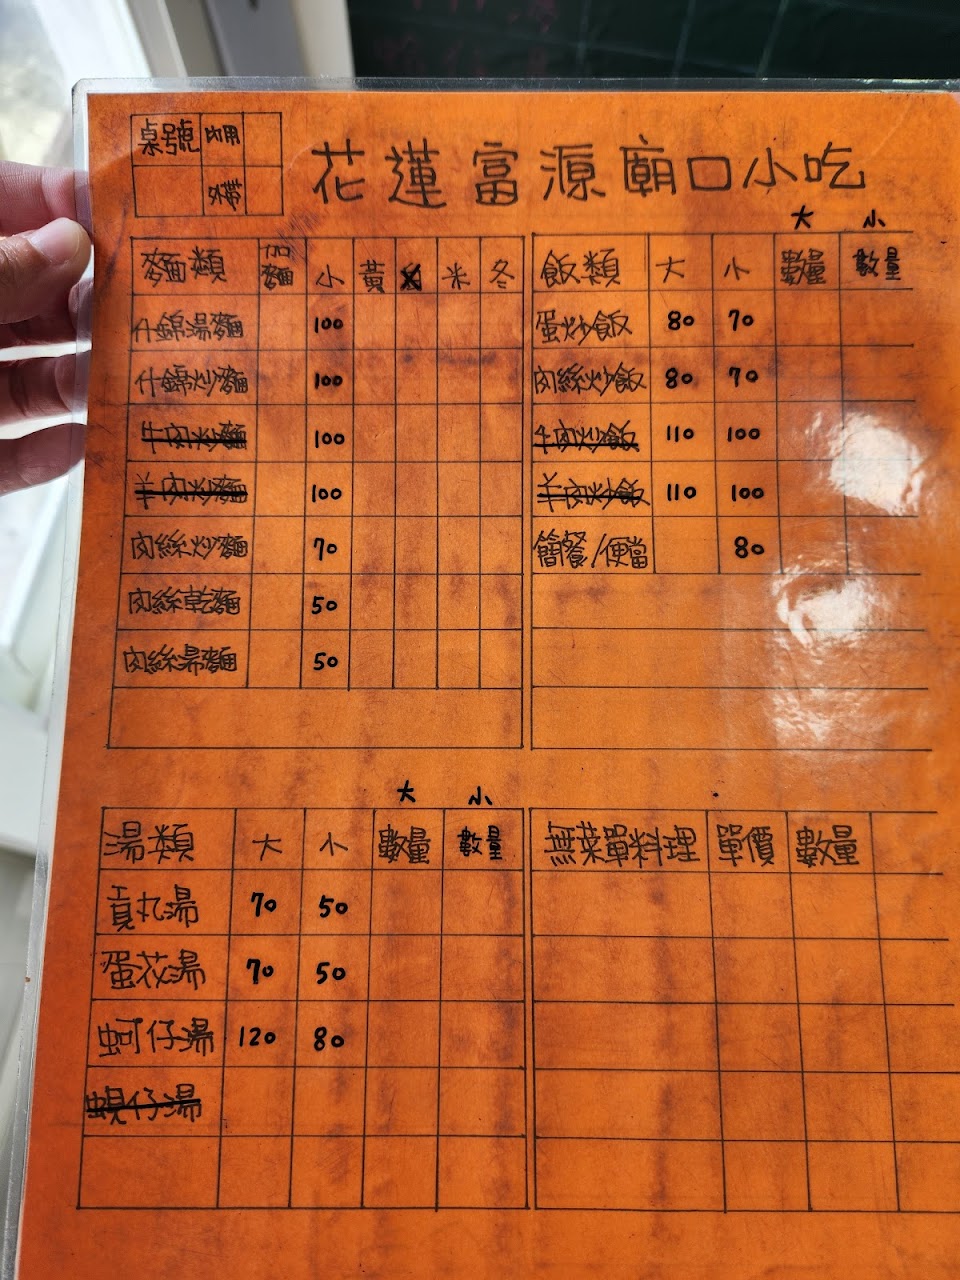 桌號 內用
外帶
花蓮富源廟口小吃
大 小
麵類 加麵 小 黃 米 冬
什錦湯麵 100
什錦炒麵 100
牛肉炒麵 100
羊肉炒麵 100
肉絲炒麵 70
肉絲乾麵 50
肉絲湯麵 50
飯類 大 小 數量 數量
蛋炒飯 80 70
肉絲炒飯 80 70
牛肉炒飯 110 100
羊肉炒飯 110 100
簡餐/便當 80
大 小
湯類 大 小 數量 數量
貢丸湯 70 50
蛋花湯 70 50
蚵仔湯 120 80
蜆仔湯
無菜單料理 單價 數量